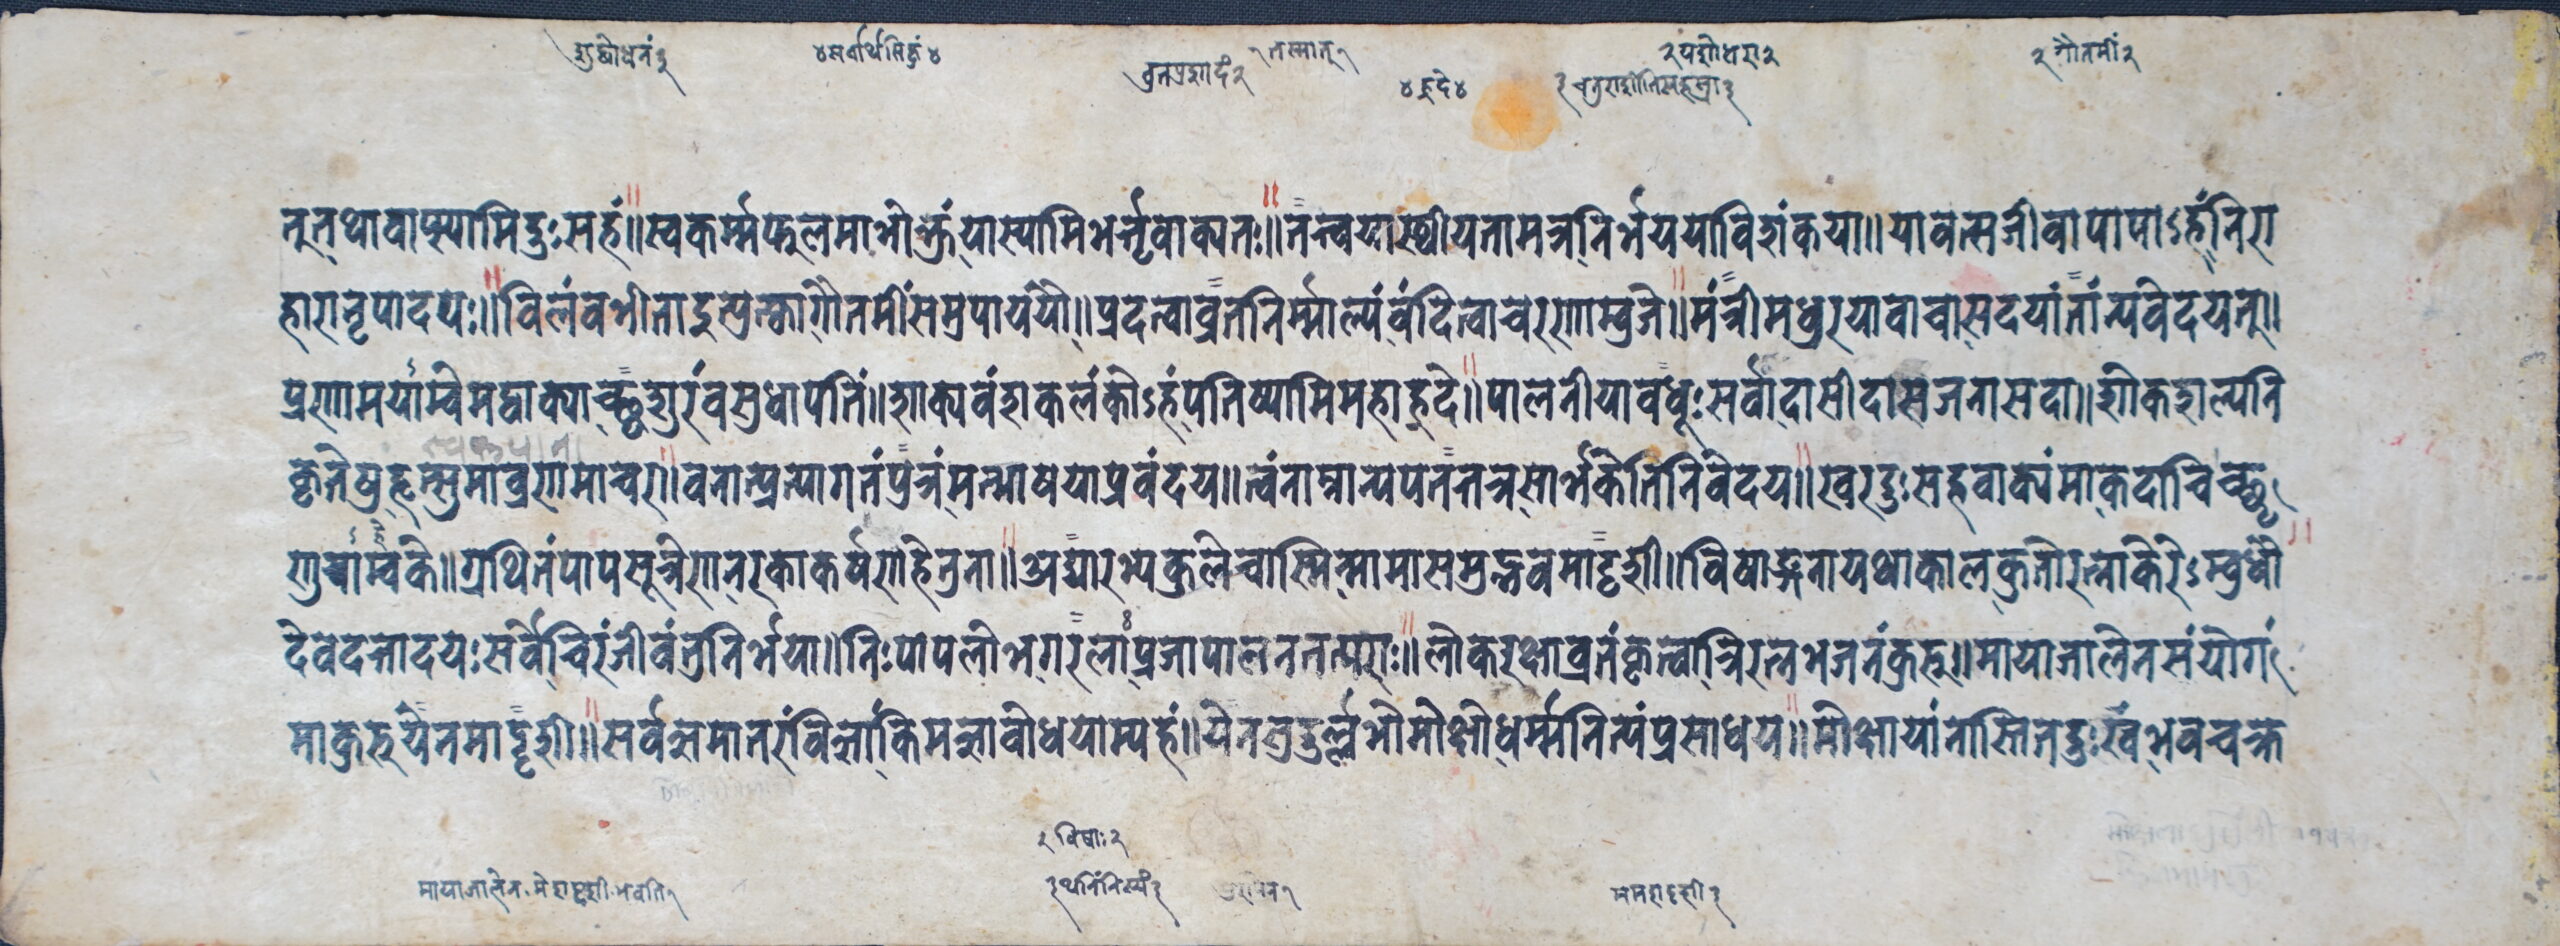 शुद्धोधनं३
४सर्वार्थसिद्धं४
व्रतप्रशादं२
१तस्मात्१
४ह्रदे४
२यशोधरा२
३चतुराशीतिसहस्रा३
२गौतमीं२
नुतथावाप्स्यामिदुःसहं॥स्वकर्म्मफलमाभोक्तुंयास्यामिभर्तृवाक्यतः॥तत्त्वयास्थीयतामत्रनिर्भययाविशंकया॥यावत्सजीवापापाऽहंनिरा
हारानृपादयः॥विलंवभीताद्रुत्प्लुत्कागौतमींसमुपाययौ॥प्रदत्वाव्रतनिर्म्माल्यंवंदित्वाचरणाम्बुजे॥मंत्रीमधुरयावाचासदयांतांन्यवेदयत्॥
प्रणामयाम्बेमद्वाक्याच्छ्वशुरंवसुधापतिं॥शाक्यवंशकलंकोऽहंपतिष्यामिमहाह्रदे॥पालनीयावधूःसर्वादासीदासजनासदा॥शोकशल्यनि
कृतेषुहृत्सुमाव्रणमाचर॥वनात्प्रत्यागतंपुत्रंमन्भाषयाप्रवंदय॥त्वंनाम्नान्यपतत्तत्रसार्भकेतिनिवेदय॥खरदुःसहवाक्यंमाकदाचिच्छृ
णुचाम्बिके॥ग्रथितंपापसूत्रेणनरकाकर्षणहेतुना॥अद्यारभ्यकुलेचास्मिन्मामासमुद्भवमादृशी॥विषाङ्गनायथाकालकुजोरत्नाकरेऽम्बुधौ
देवदत्तादयःसर्वेचिरंजीवंतुनिर्भया॥निःपापलोभगरलाप्रजापालनतत्पराः॥लोकरक्षाव्रतंकृत्वात्रिरत्नभजनंकुरु॥मायाजालेनसंयोगं
माकुरुयेनमादृशी॥सर्वज्ञमातरंविज्ञांकिमज्ञावोधयाम्यहं॥येनतुदुर्ल्लभोमोक्षोधर्म्मनित्यंप्रसाधय॥मोक्षायांनास्तितदुःखंभवचक्र
२विषाः२
मायाजालेन.मेदादृशी.भवति१
ममदादृशी३